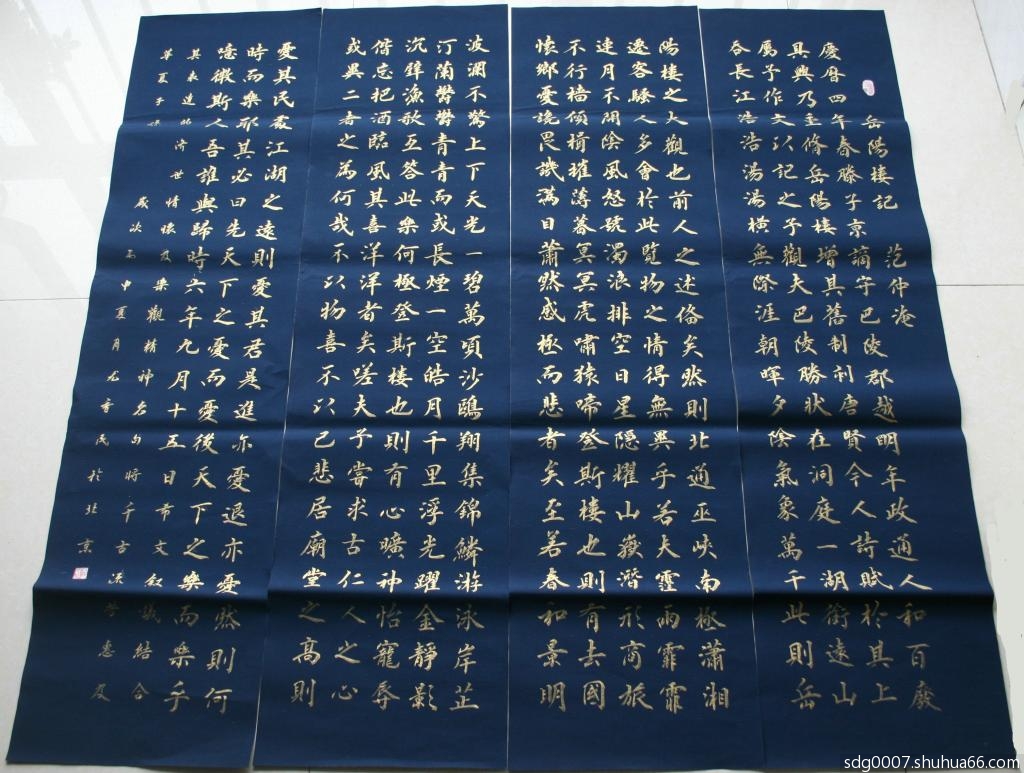 岳陽樓記 范仲淹
慶曆四年春滕子京謫守巴陵郡越明年政通人和百廢
具興乃重修岳陽樓增其舊制刻唐賢今人詩賦於其上
屬予作文以記之予觀夫巴陵勝狀在洞庭一湖銜遠山
吞長江浩浩湯湯橫無際涯朝暉夕陰氣象萬千此則岳
陽樓之大觀也前人之述備矣然則北通巫峽南極瀟湘
遷客騷人多會於此覽物之情得無異乎若夫霪雨霏霏
連月不開陰風怒號濁浪排空日星隱耀山嶽潛形商旅
不行檣傾楫摧薄暮冥冥虎嘯猿啼登斯樓也則有去國
懷鄉憂讒畏譏滿目蕭然感極而悲者矣至若春和景明
波瀾不驚上下天光一碧萬頃沙鷗翔集錦鱗游泳岸芷
汀蘭鬱鬱青青而或長煙一空皓月千里浮光躍金靜影
沉璧漁歌互答此樂何極登斯樓也則有心曠神怡寵辱
偕忘把酒臨風其喜洋洋者矣嗟夫予嘗求古仁人之心
或異二者之為何哉不以物喜不以己悲居廟堂之高則
憂其民處江湖之遠則憂其君是進亦憂退亦憂然則何
時而樂耶其必曰先天下之憂而憂後天下之樂而樂乎
噫微斯人吾誰與歸時六年九月十五日 希文叙議結合
其表達的濟世情懷及樂觀精神名句將千古流芳惠及
華夏子孫 歲次甲申夏月尤香民於北京
sdg0007.shuhua66.com